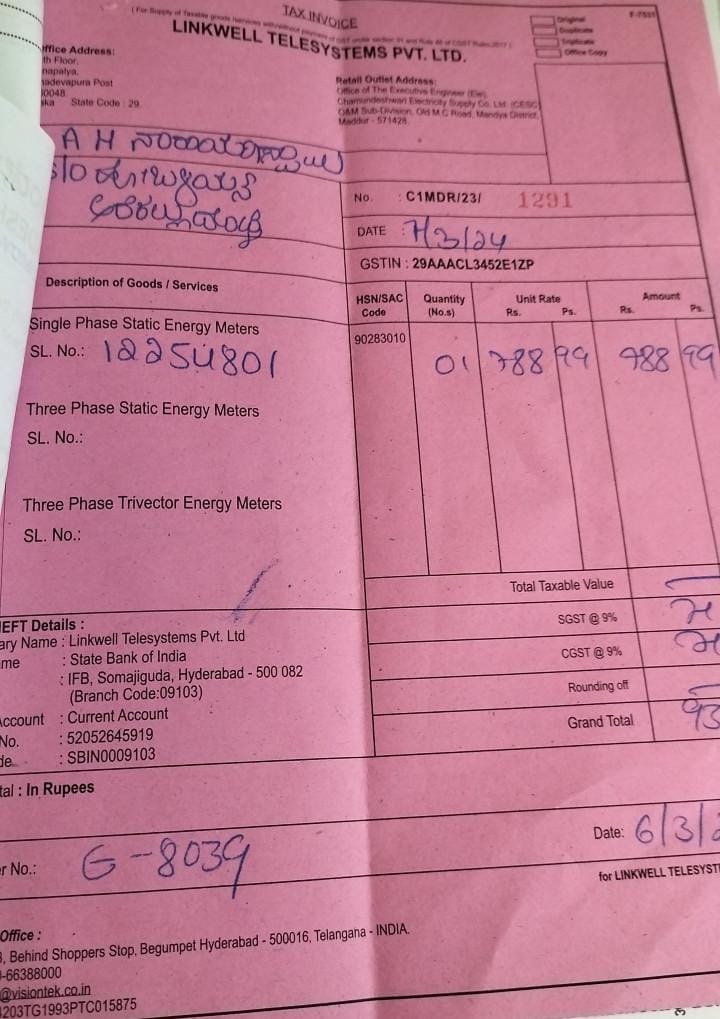 TAX INVOICE
LINKWELL TELESYSTEMS PVT. LTD.
F-7531
Original
Duplicate
Triplicate
Office Copy
ffice Address:
th Floor,
napalya,
adevapura Post
0048.
ka State Code : 29
Retail Outlet Address:
Office of The Executive Engineer (Ele),
Chamundeshwari Electricity Supply Co. Ltd. (CESC)
O&M Sub-Division, Old M.C Road, Mandya District,
Maddur - 571428.
A H
S/O
No. : C1MDR/23/ 1291
DATE : 7/3/24
GSTIN : 29AAACL3452E1ZP
Description of Goods / Services
HSN/SAC Code
Quantity (No.s)
Unit Rate
Rs. Ps.
Amount
Rs. Ps.
Single Phase Static Energy Meters
90283010
SL. No.: 12254801
01 788 99 788 99
Three Phase Static Energy Meters
SL. No.:
Three Phase Trivector Energy Meters
SL. No.:
Total Taxable Value
SGST @ 9%
CGST @ 9%
Rounding off
Grand Total 93
EFT Details :
ary Name : Linkwell Telesystems Pvt. Ltd
me : State Bank of India
: IFB, Somajiguda, Hyderabad - 500 082
(Branch Code:09103)
Account : Current Account
No. : 52052645919
de : SBIN0009103
tal : In Rupees
Date: 6/3/2
r No.: G-8039
for LINKWELL TELESYST
Office :
, Behind Shoppers Stop, Begumpet Hyderabad - 500016, Telangana - INDIA.
-66388000
@visiontek.co.in
4203TG1993PTC015875